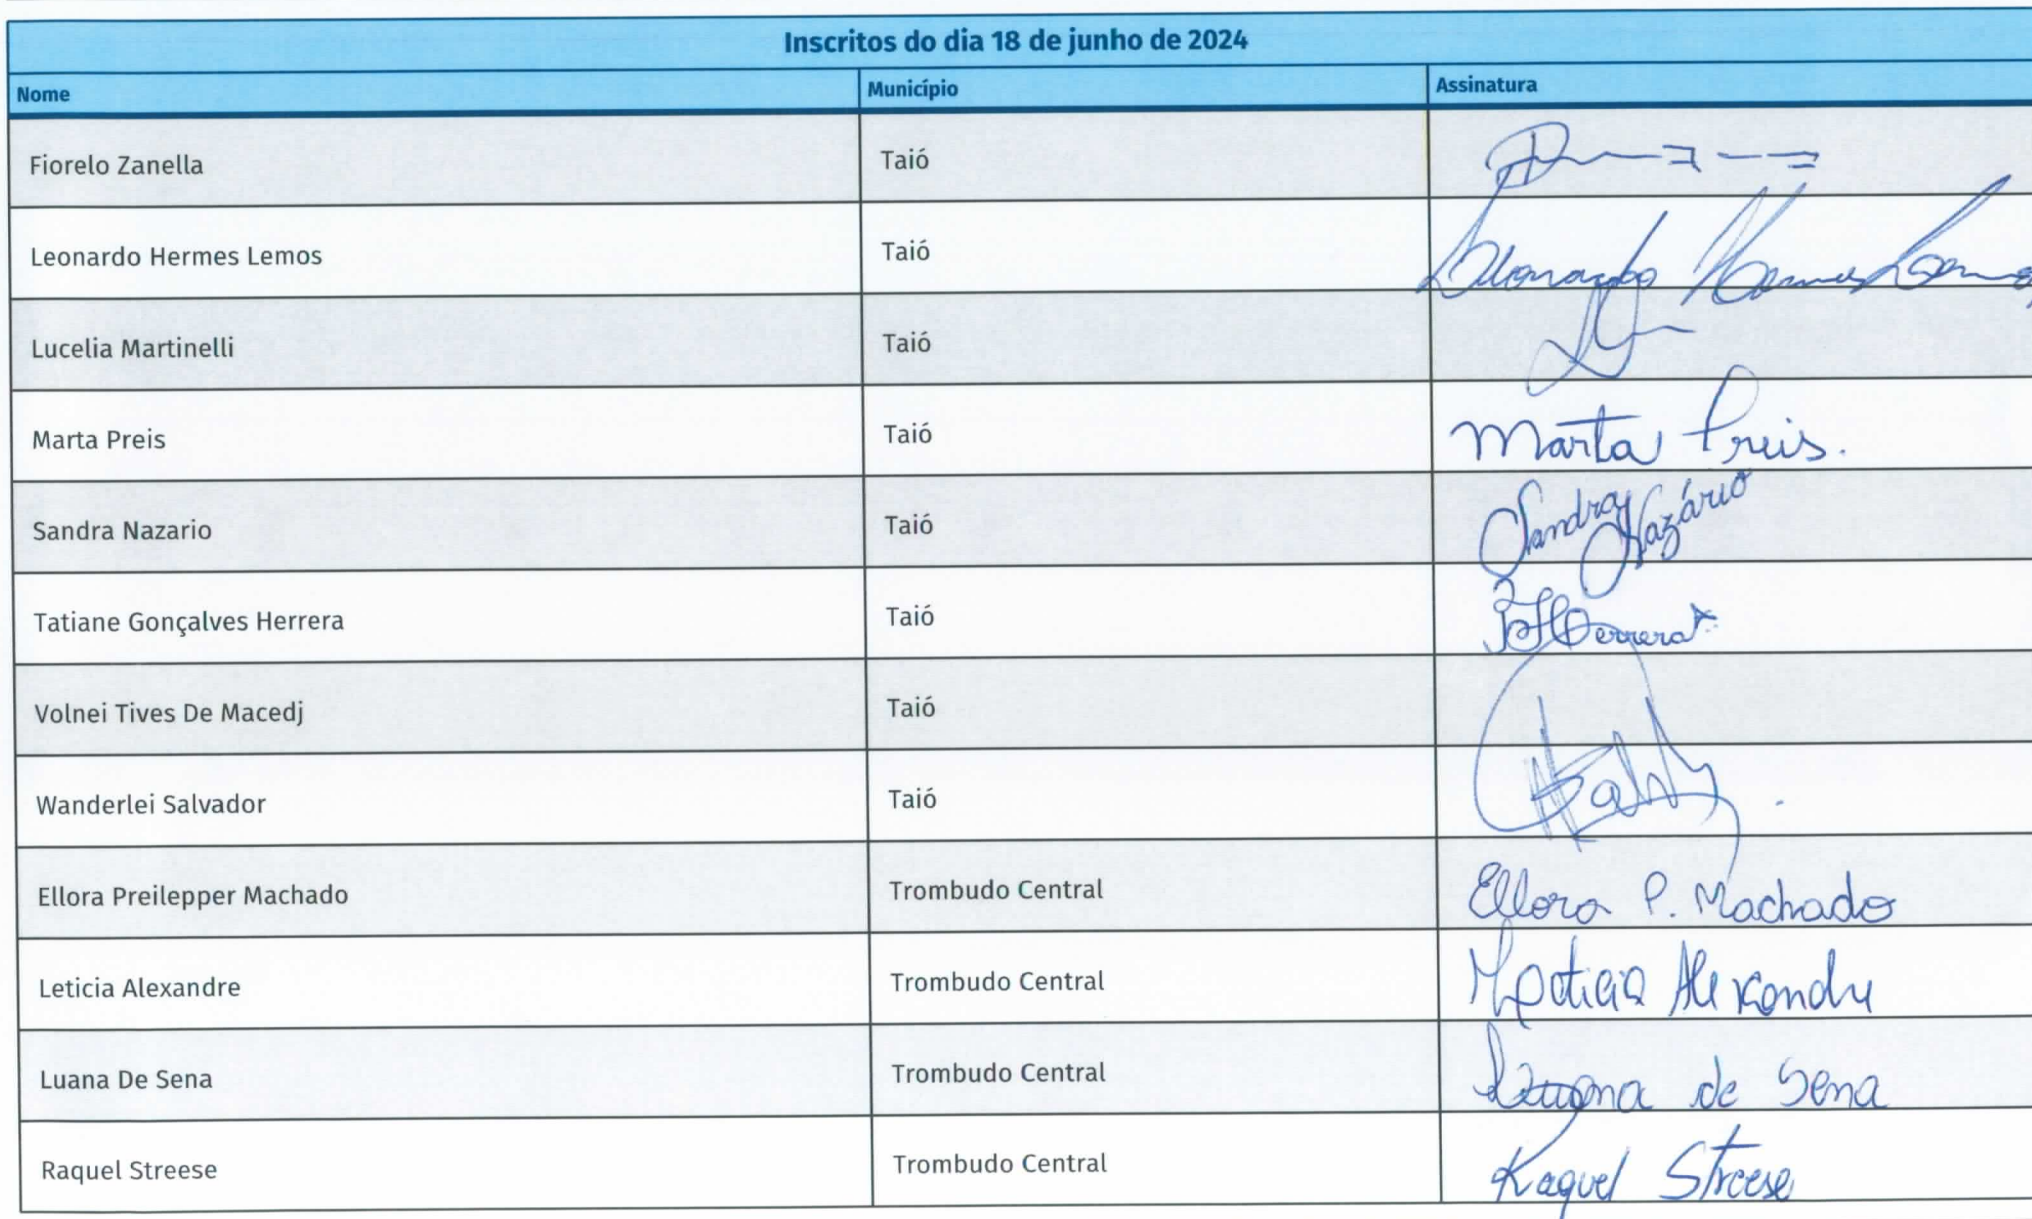 Inscritos do dia 18 de junho de 2024
Nome Município Assinatura
Fiorelo Zanella Taió
Leonardo Hermes Lemos Taió Leonardo Hermes Lemos
Lucelia Martinelli Taió
Marta Preis Taió Marta Preis.
Sandra Nazario Taió Sandra Nazário
Tatiane Gonçalves Herrera Taió Herrera
Volnei Tives De Macedj Taió
Wanderlei Salvador Taió
Ellora Preilepper Machado Trombudo Central Ellora P. Machado
Leticia Alexandre Trombudo Central Leticia Alexandre
Luana De Sena Trombudo Central Luana de Sena
Raquel Streese Trombudo Central Raquel Streese